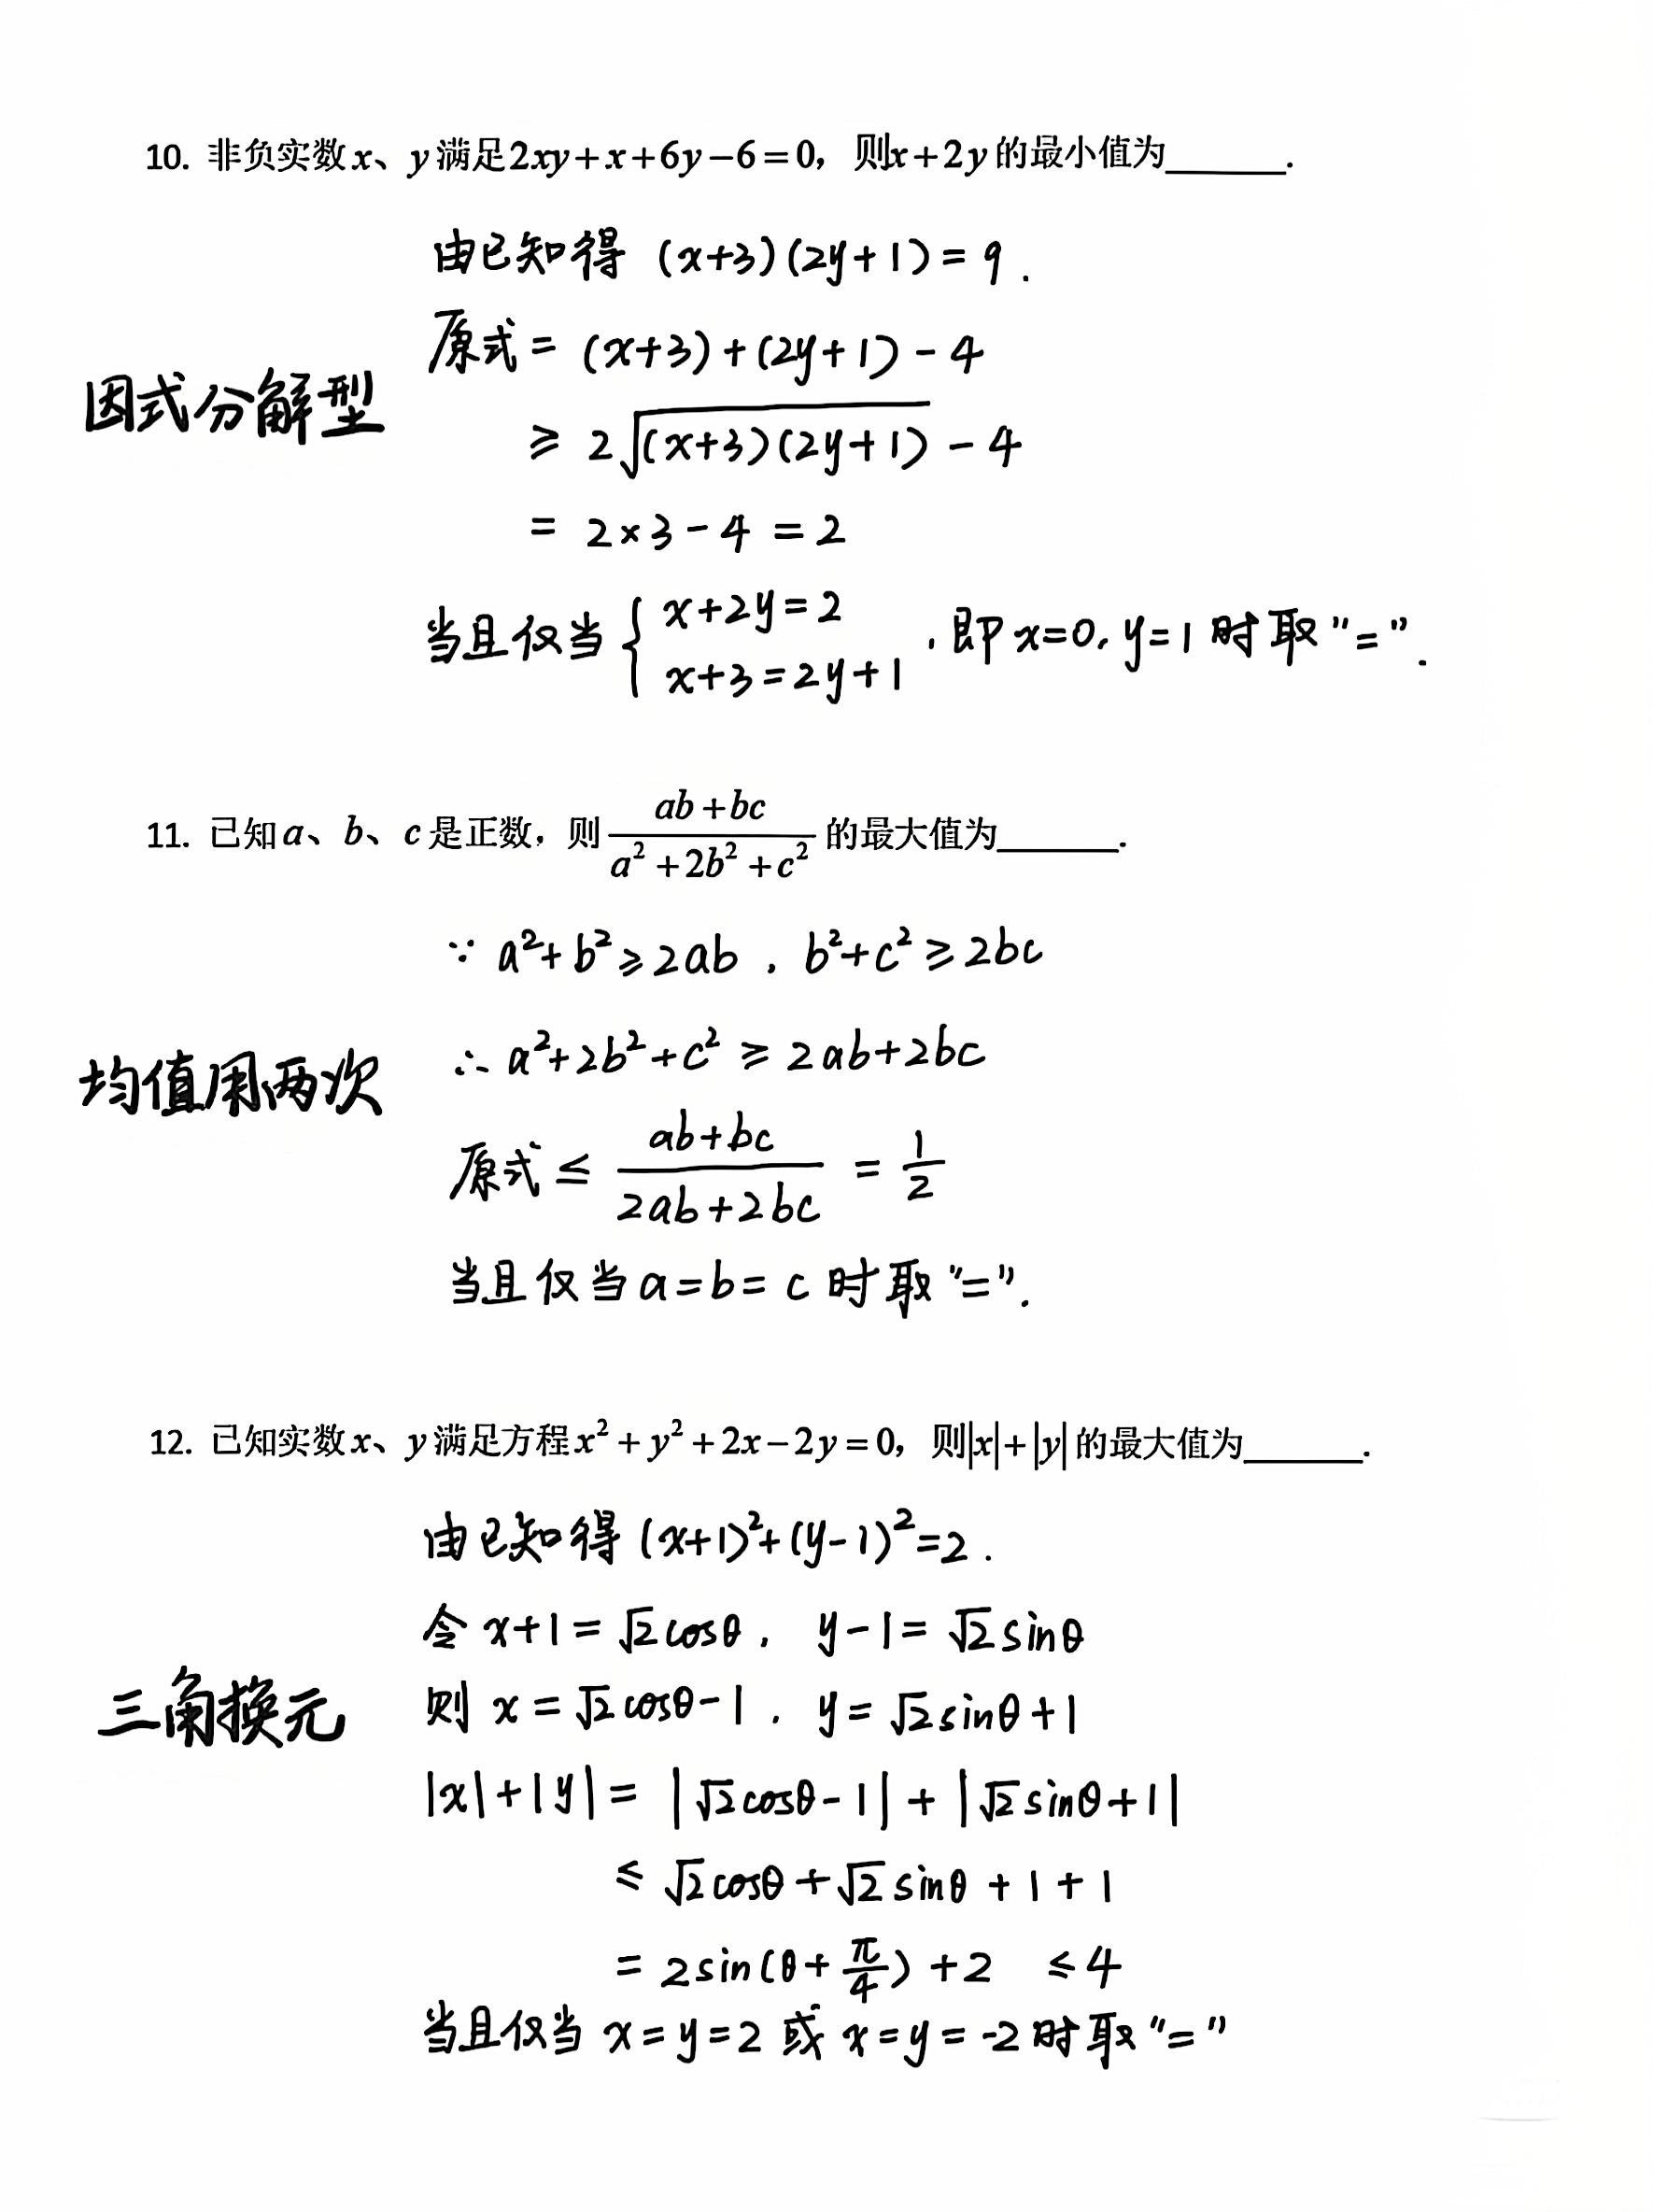 10. 非负实数x、y满足2xy+x+6y-6=0，则x+2y的最小值为______.
由已知得 (x+3)(2y+1)=9.
原式= (x+3)+(2y+1)-4
因式分解型
≥ 2√(x+3)(2y+1) - 4
= 2×3-4 = 2
当且仅当 { x+2y=2
x+3=2y+1 , 即x=0, y=1时取"=".
11. 已知a、b、c是正数，则 (ab+bc)/(a²+2b²+c²) 的最大值为______.
∵ a²+b²≥2ab , b²+c²≥2bc
均值用两次
∴ a²+2b²+c² ≥ 2ab+2bc
原式 ≤ (ab+bc)/(2ab+2bc) = 1/2
当且仅当a=b=c时取"=".
12. 已知实数x、y满足方程x²+y²+2x-2y=0，则|x|+|y|的最大值为______.
由已知得 (x+1)²+(y-1)²=2.
令 x+1=√2cosθ, y-1=√2sinθ
三角换元
则 x=√2cosθ-1, y=√2sinθ+1
|x|+|y| = |√2cosθ-1| + |√2sinθ+1|
≤ √2cosθ+√2sinθ+1+1
= 2sin(θ+π/4)+2 ≤4
当且仅当 x=y=2 或 x=y=-2时取"="